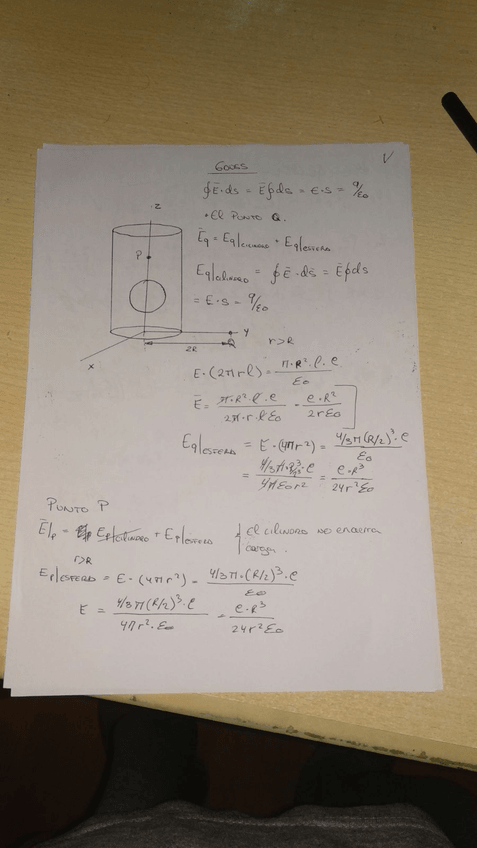 GAUSS
∮Ē·ds = Ē∮ds = E·S = q/ε₀
• El PUNTO Q.
Ēq = Eq|cilindro + Eq|esfera
Eq|cilindro = ∮Ē·ds̄ = Ē∮ds
= E·S = q/ε₀
z
P
y
Q
2R
x
r>R
E·(2πrl) = π·R²·l·ρ / ε₀
Ē = π·R²·l·ρ / 2π·r·l·ε₀ = ρ·R² / 2rε₀
Eq|esfera = E·(4πr²) = 4/3π(R/2)³·ρ / ε₀
= ρ·R³ / 24r²ε₀
PUNTO P
Ē|p = Ep|cilindro + Ep|esfera
El cilindro no encierra
carga.
r>R
Ep|esfera = E·(4πr²) = 4/3π·(R/2)³·ρ / ε₀
E = 4/3π(R/2)³·ρ / 4πr²·ε₀ = ρ·R³ / 24r²ε₀